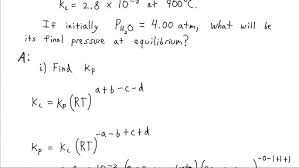 Kc = 2.8 × 10⁻² at 900°C.
If initially P_H₂O = 4.00 atm, what will be
its final pressure at equilibrium?
A:
i) Find Kp
Kc = Kp (RT)^a+b-c-d
Kp = Kc (RT)^-a-b+c+d
-0-1+1+1